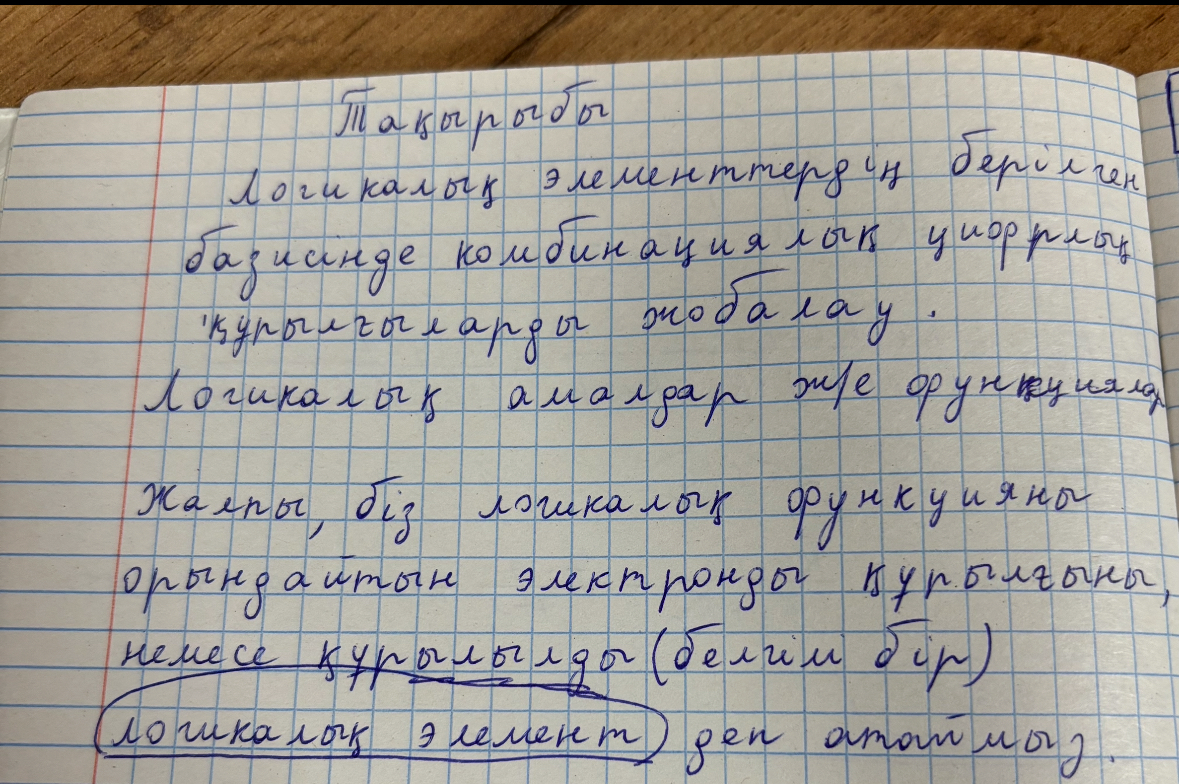 Тақырыбы
Логикалық элементтердің берілген
базисінде комбинациялық цифрлық
құрылғыларды жобалау.
Логикалық амалдар ж/е функциялар
Жалпы, біз логикалық функцияны
орындайтын электронды құрылғыны,
немесе құрылылды (белгілі бір)
логикалық элемент деп атаймыз.